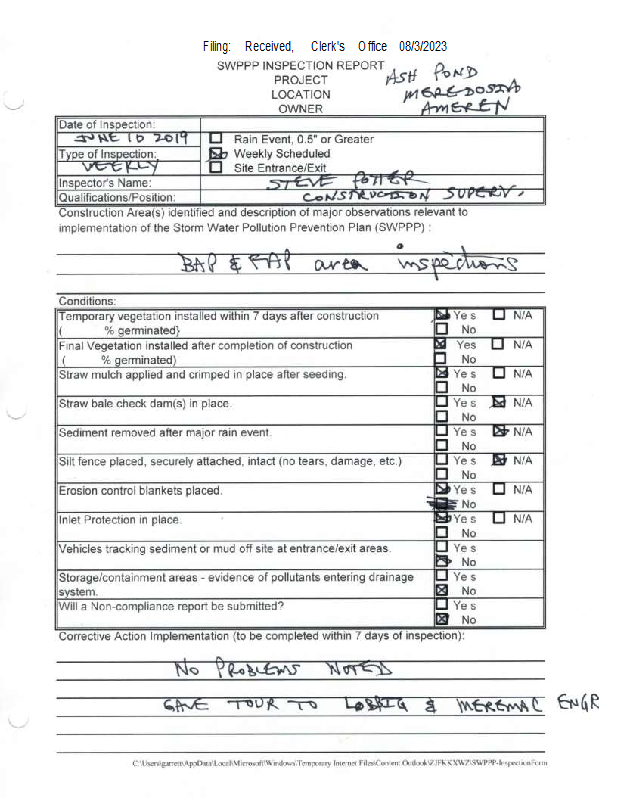 Filing: Received, Clerk's Office 08/3/2023
SWPPP INSPECTION REPORT
PROJECT ASH POND
LOCATION MEREDOSIA
OWNER AMEREN
Date of Inspection:
JUNE 10 2019
☐ Rain Event, 0.5" or Greater
Type of Inspection: ☒ Weekly Scheduled
WEEKLY ☐ Site Entrance/Exit
Inspector's Name: STEVE POTTER
Qualifications/Position: CONSTRUCTION SUPERV.
Construction Area(s) identified and description of major observations relevant to
implementation of the Storm Water Pollution Prevention Plan (SWPPP) :
BAP & FAP area inspections
Conditions:
Temporary vegetation installed within 7 days after construction ☒ Yes ☐ N/A
( % germinated) ☐ No
Final Vegetation installed after completion of construction ☒ Yes ☐ N/A
( % germinated) ☐ No
Straw mulch applied and crimped in place after seeding. ☒ Yes ☐ N/A
☐ No
Straw bale check dam(s) in place. ☐ Yes ☒ N/A
☐ No
Sediment removed after major rain event. ☐ Yes ☒ N/A
☐ No
Silt fence placed, securely attached, intact (no tears, damage, etc.) ☐ Yes ☒ N/A
☐ No
Erosion control blankets placed. ☒ Yes ☐ N/A
No
Inlet Protection in place. ☒ Yes ☐ N/A
☐ No
Vehicles tracking sediment or mud off site at entrance/exit areas. ☐ Yes
☒ No
Storage/containment areas - evidence of pollutants entering drainage ☐ Yes
system. ☒ No
Will a Non-compliance report be submitted? ☐ Yes
☒ No
Corrective Action Implementation (to be completed within 7 days of inspection):
NO PROBLEMS NOTED
GAVE TOUR TO & ENGR